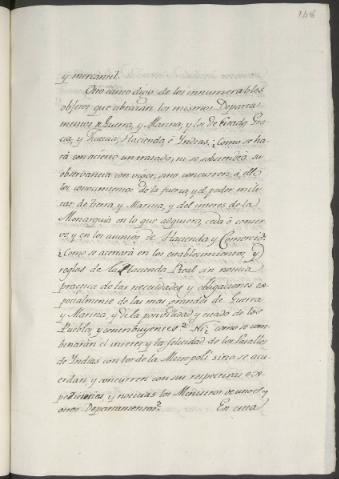 148
y mercantil.
Otro tanto digo de los innumerables
objetos que abrazan los mismos Departa
mentos de Guerra, y Marina, y los de Estado, Gra
cia, y Justicia, Hacienda, è Yndias. ¿Como se ha
rá con acierto un tratado, ni se sobstendrá su
observancia con vigor, sino concurren à ello
los conocimientos de la fuerza, y el poder mili
tar de tierra, y Marina, y del interes de la
Monarquia en lo que adquiera, ceda ò conser
ve, y en los asuntos de Hacienda y Comercio?
¿Como se acertará en los establecimientos, y
reglas de la Hacienda Real sin noticia
practica de las necesidades y obligaciones es
pecialmente de las mas grandes de Guerra
y Marina, y de la posibilidad y estado de los
Pueblos, y contribuyentes? ¿Como se com
binarán el interes, y la felicidad de los Vasallos
de Yndias con los de la Metropoli sino se acu
erdan, y concurren con sus respectivas ex
pediciones, y noticias los Ministros de unos, y
otros Departamentos?
En una